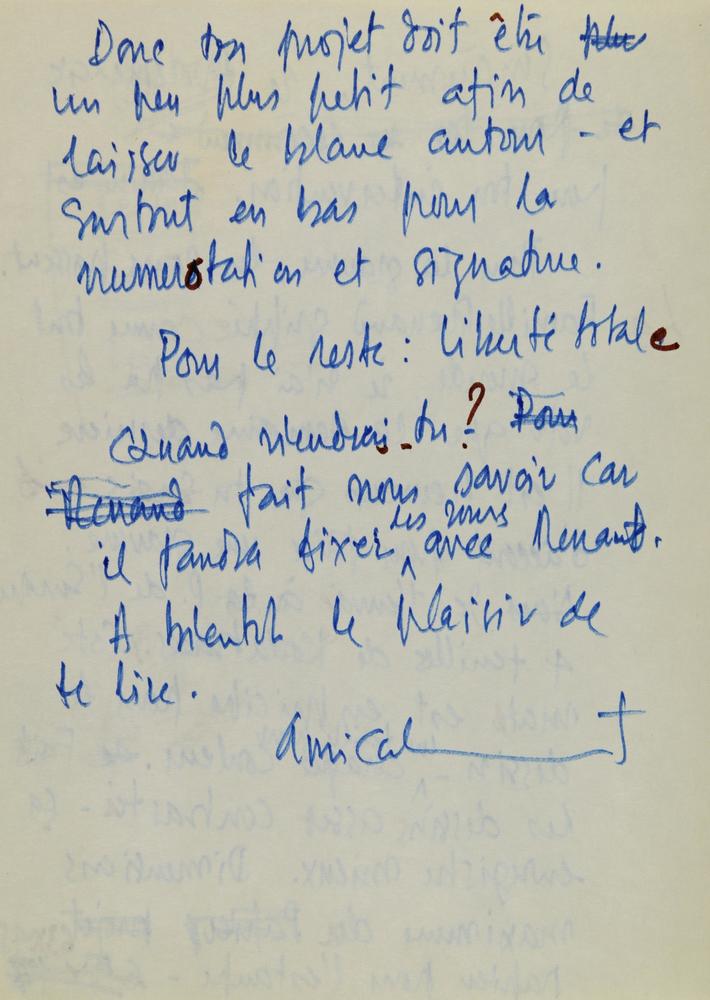 Donc ton projet doit être plus
un peu plus petit afin de
laisser le blanc autour - et
surtout en bas pour la
numerotation et signature.
Pour le reste : liberté totale
Quand viendras-tu ? Pour
Renaud fait nous savoir car
les jours
il faudra fixer avec Renaud.
A bientôt le plaisir de
te lire.
Amical